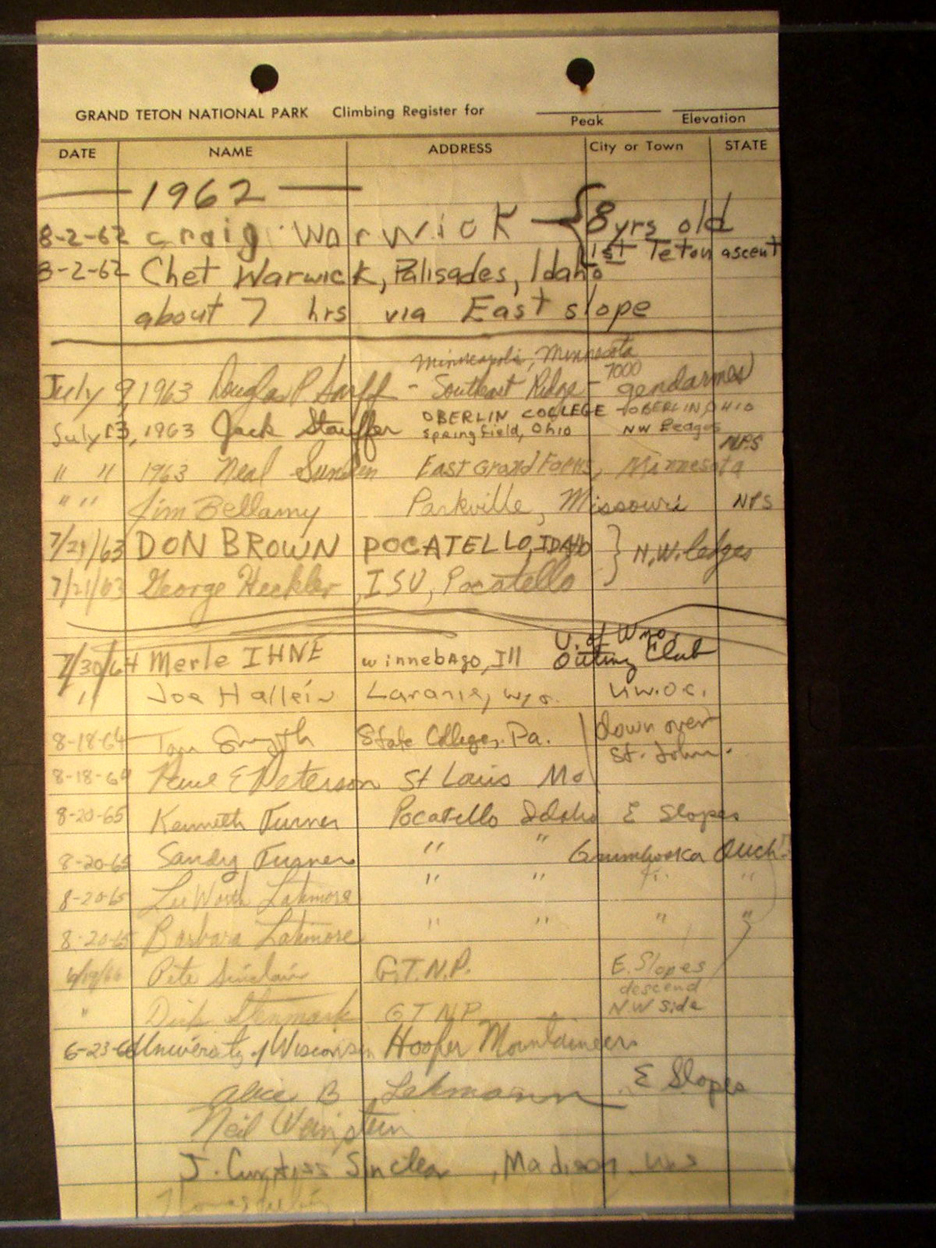 GRAND TETON NATIONAL PARK Climbing Register for
Peak Elevation
DATE NAME ADDRESS City or Town STATE
— 1962 —
8-2-62 craig Warwick — { 8 yrs old
1st Teton ascent
8-2-62 Chet Warwick, Palisades, Idaho
about 7 hrs via East slope
Minneapolis, Minnesota
July 9, 1963 Douglas P - Southeast Ridge - 7000 gendarmes
July 13, 1963 Jack Stauffer OBERLIN COLLEGE OBERLIN, OHIO
Springfield, Ohio NW Ledges
NPS
" " 1963 Neal East Grand Forks, Minnesota
" " Jim Bellamy Parkville, Missouri NPS
7/21/63 DON BROWN POCATELLO, IDAHO } N.W. Ledges
7/21/63 George Heckler, ISU, Pocatello
U. of Wyo.
7/30/64 Merle IHNE winnebago, Ill Outing Club
" Joe Laramie, wyo. U.W.O.C.
8-18-64 Tom Smyth State College, Pa. down over
St. John.
8-18-64 Paul E Peterson St Louis Mo
8-20-65 Kenneth Turner Pocatello Idaho E Slopes
8-20-65 Sandy Turner " " Ouch!
8-20-65 Lee Worth Lakmore " " " "
8-20-65 Barbara Lakmore " " " "
Pete Sinclair G.T.N.P. E. Slopes
descend
" Dick G T N P NW side
6-23-66 University of Wisconsin Hoofer Mountaineers
Alice B E Slopes
Neil Weinstein
J. Curtiss Sinclear, Madison Wis